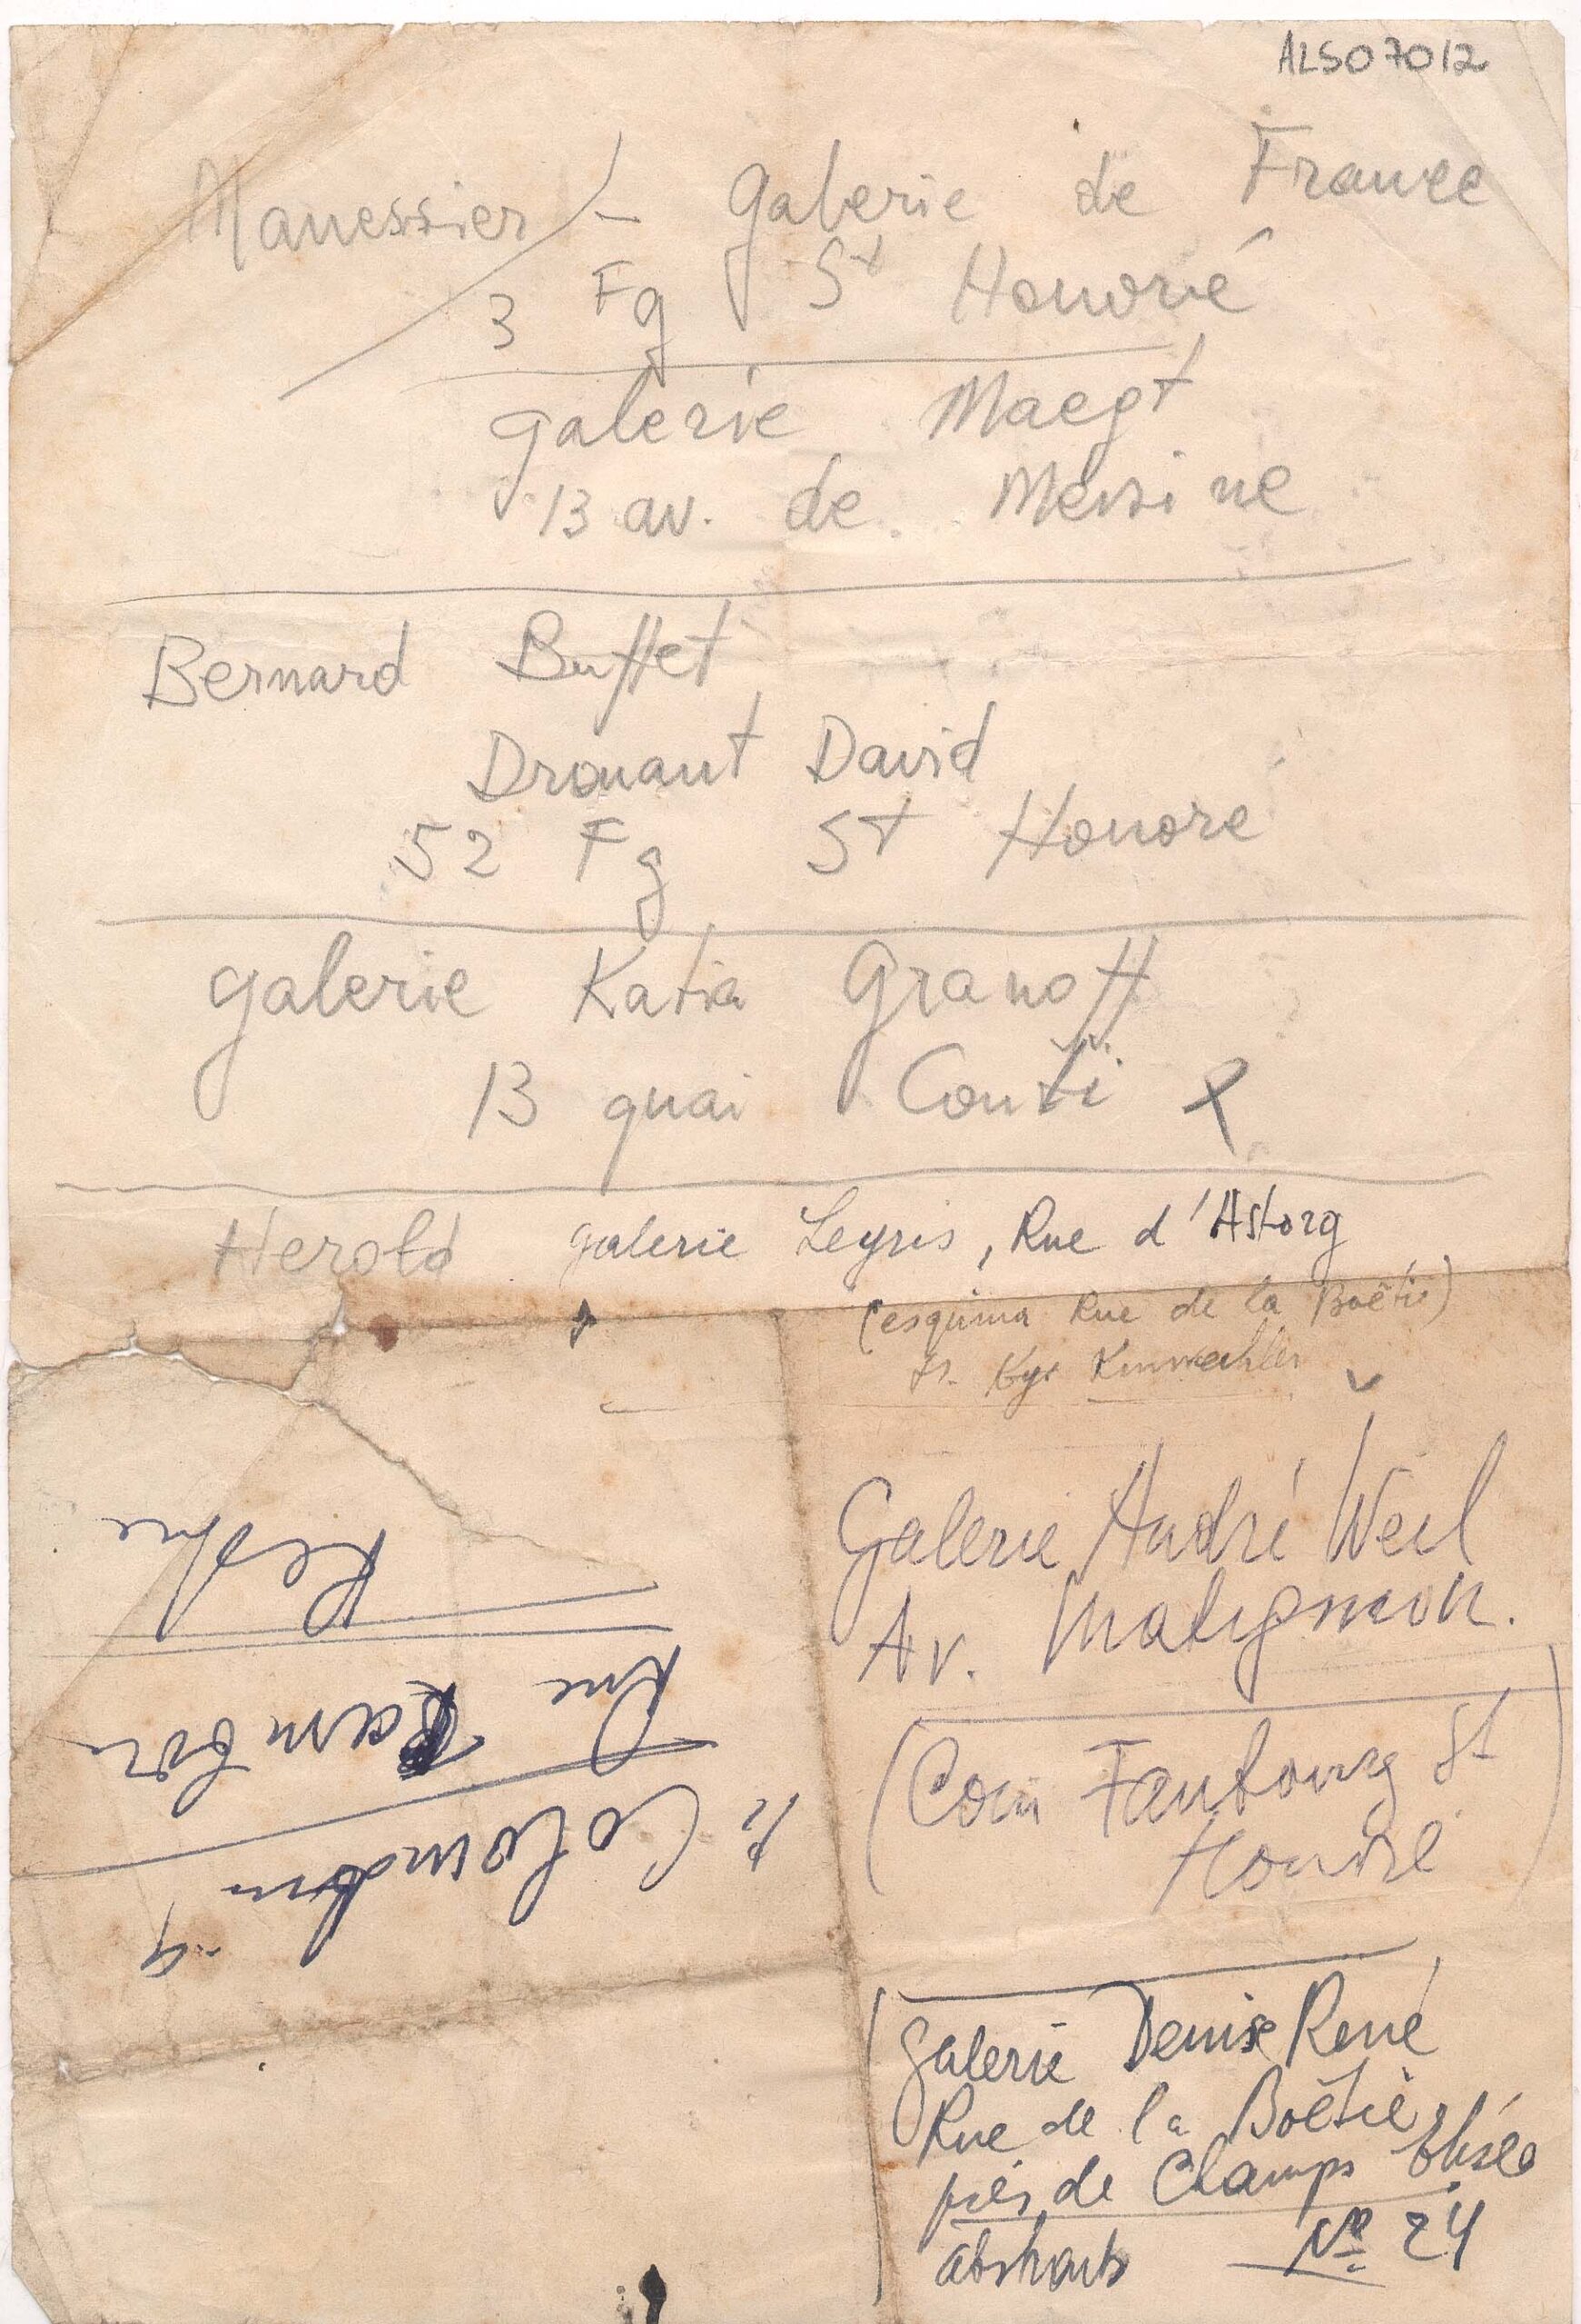 ALS07012
Manessier - Galerie de France
3 Fg St Honoré
galerie Maegt
13 av. de Messine
Bernard Buffet
Drouant David
52 Fg St Honoré
galerie Katia Granoff
13 quai Conti
Herold galerie Leyris, Rue d'Astorg
(esquina Rue de la Boêtie)
Galerie André Weil
Av. Matignon.
(Coin Faubourg St
Honoré)
galerie Denise René
Rue de la Boêtie
près de Champs Elisée
abstraits Nº 24
Colombin
Rue Cambon